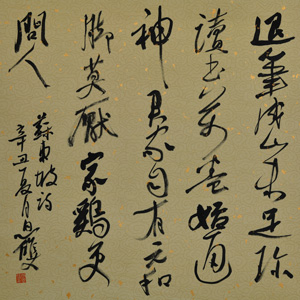 退筆成山未足珍
讀書萬卷始通
神君家自有元和
腳莫厭家雞更
問人
蘇東坡詩
辛丑
月
雙